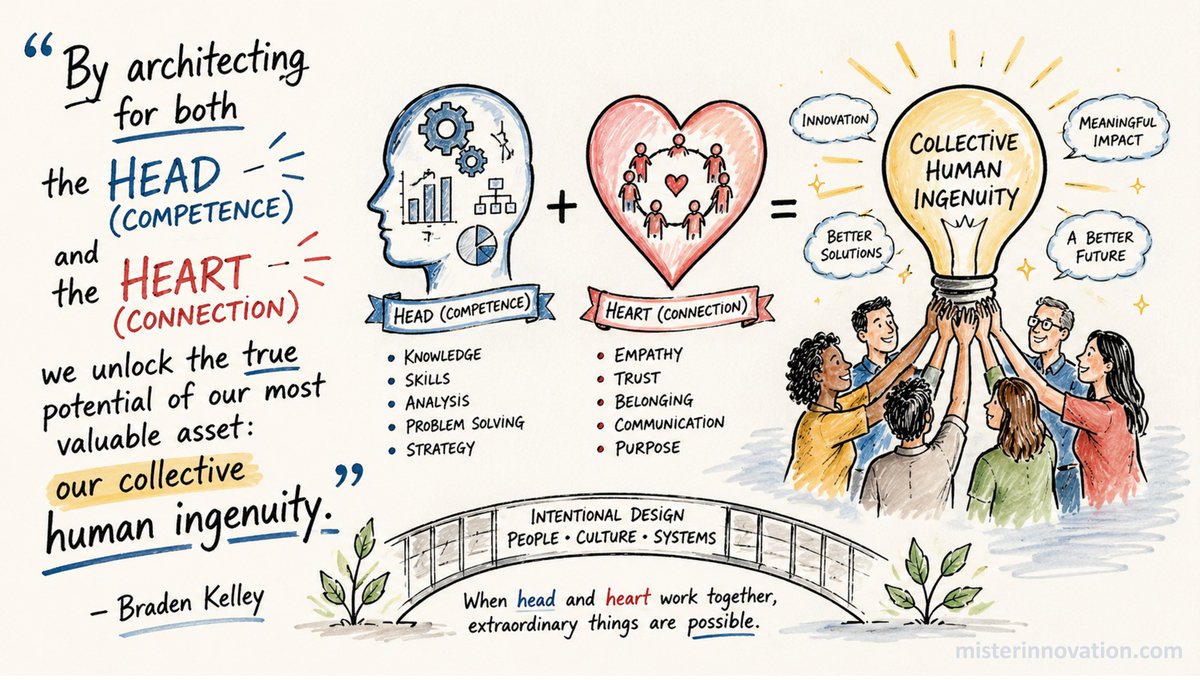 “By architecting
for both
the HEAD
(COMPETENCE)
and
the HEART
(CONNECTION)
we unlock the true
potential of our most
valuable asset:
our collective
human ingenuity.”
– Braden Kelley
HEAD (COMPETENCE)
• KNOWLEDGE
• SKILLS
• ANALYSIS
• PROBLEM SOLVING
• STRATEGY
+
HEART (CONNECTION)
• EMPATHY
• TRUST
• BELONGING
• COMMUNICATION
• PURPOSE
=
INNOVATION
MEANINGFUL
IMPACT
COLLECTIVE
HUMAN
INGENUITY
BETTER
SOLUTIONS
A BETTER
FUTURE
INTENTIONAL DESIGN
PEOPLE • CULTURE • SYSTEMS
When head and heart work together,
extraordinary things are possible.
misterinnovation.com